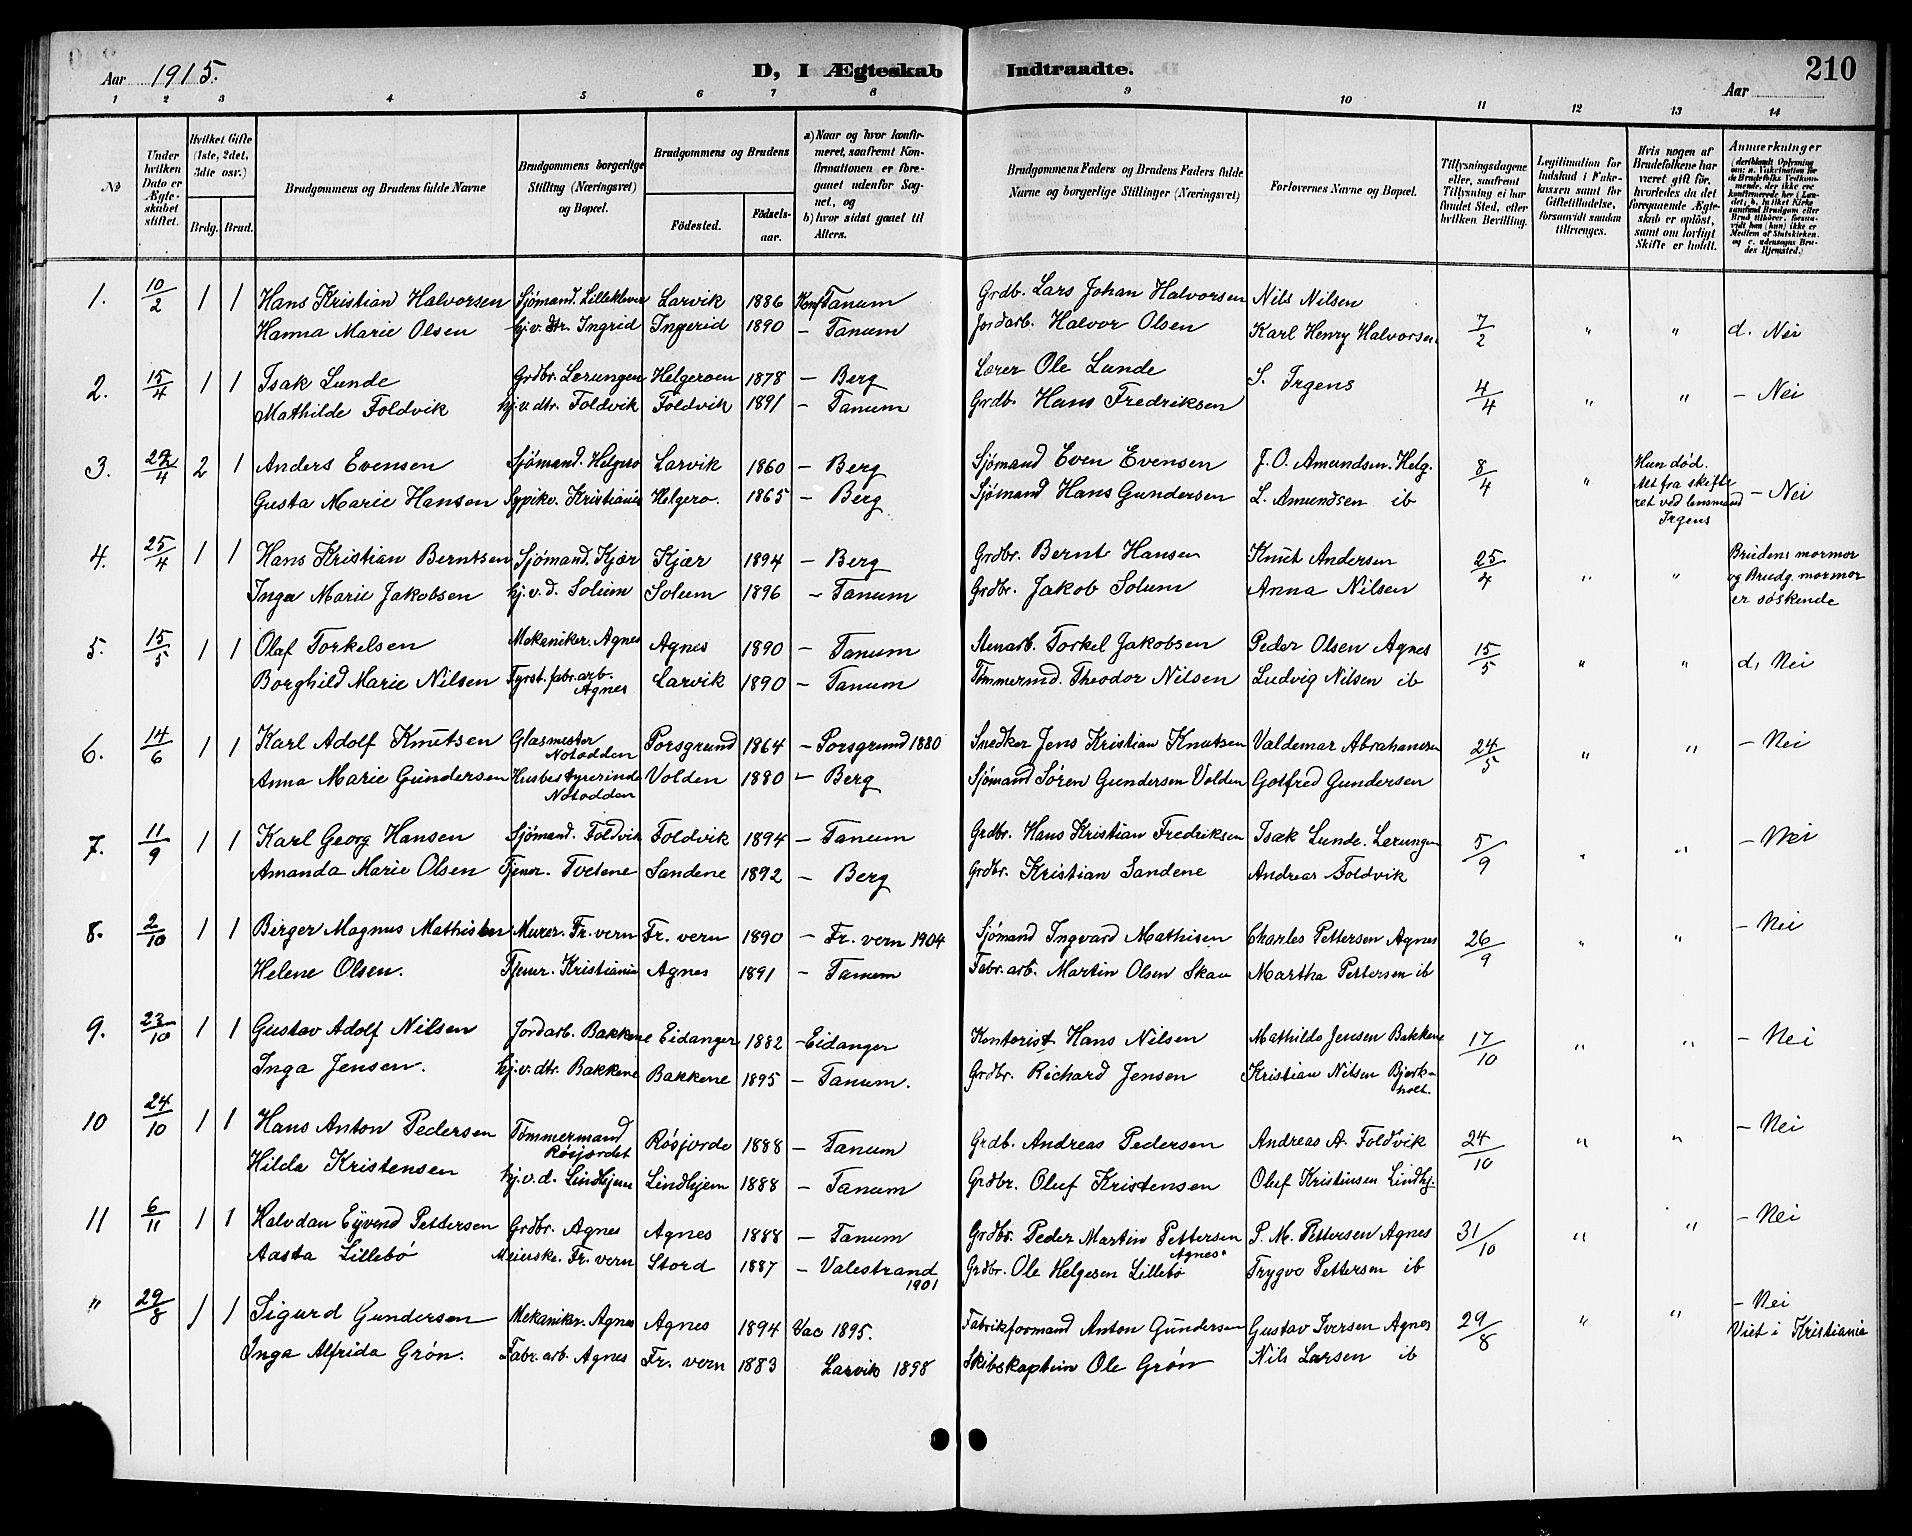 Aar 1915.
D, I Ægteskab Indtraadte.
210
Aar
1 2 3 4 5 6 7 8 9 10 11 12 13 14
No
Under hvilken Dato er Ægteskabet stiftet.
Hvilket Gifte (1ste, 2det, 3die osv.)
Brdg. Brud.
Brudgommens og Brudens fulde Navne
Brudgommens borgerlige Stilling (Næringsvei) og Bopæl.
Brudgommens og Brudens
Födested. Födselsaar.
a) Naar og hvor konfirmeret, saafremt Konfirmationen er foregaaet udenfor Sognet, og
b) hvor sidst gaaet til Alters.
Brudgommens Faders og Brudens Faders fulde Navne og borgerlige Stillinger (Næringsvei)
Forlovernes Navne og Bopæl.
Tillysningsdagene eller, saafremt Tillysning ei har fundet Sted, efter hvilken Bevilling.
Legitimation for Indskud i Enkekassen samt for Giftetilladelse, forsaavidt saadan tiltrænges.
Hvis nogen af Brudefolkene har været gift för, hvorledes da det foregaaende Ægteskab er oplöst, samt om lovligt Skifte er holdt.
Anmærkninger
1. 10/2 1 1 Hans Kristian Halvorsen Sjömand. Lilleklever Larvik 1886 Konf. Tanum Grdb. Lars Johan Halvorsen Nils Nilsen
Hanna Marie Olsen hj.v. dtr. Ingrid Ingerid 1890 – Tanum Jordarb. Halvor Olsen Karl Henry Halvorsen 7/2 " " d. Nei
2. 15/4 1 1 Isak Lunde Grdbr. Lerungen Helgeroen 1878 – Berg Lærer Ole Lunde S. Irgens
Mathilde Foldvik hj.v. dtr. Foldvik Foldvik 1891 – Tanum Grdb. Hans Fredriksen 4/4 " " – Nei
3. 1 Anders Evensen Sjömand. Helgero Larvik 1860 – Berg Sjömand Even Evensen J. O. Amundsen. Helg. 8/4 " Hun död.
2 Gusta Marie Hansen Sypike. Kristiania Helgero. 1865 – Berg Sjömand Hans Gundersen L. Amundsen ib Att fra skifteret ved lensmand Irgens – Nei
4. 25/4 1 1 Hans Kristian Berntsen Sjömand. Kjær Kjær 1894 – Berg Grdbr. Bernt Hansen Knut Andersen 25/4 " " Brudens mormor
Inga Marie Jakobsen hj.v.d. Solum Solum 1896 – Tanum Grdbr. Jakob Solum Anna Nilsen og Brudg. mormor
er söskende
5. 15/5 1 1 Olaf Torkelsen Mekaniker. Agnes Agnes 1890 – Tanum Stenarb. Torkel Jakobsen Peder Olsen Agnes 15/5 " " d. Nei
Borghild Marie Nilsen Fyrst.fabr.arb. Agnes Larvik 1890 – Tanum Tömmermd. Theodor Nilsen Ludvig Nilsen ib
6. 14/6 1 1 Karl Adolf Knutsen Glasmester Notodden Porsgrund 1864 – Porsgrund 1880 Snedker Jens Kristian Knutsen Valdemar Abrahamsen 24/5 " " – Nei
Anna Marie Gundersen Husbestyrerinde Notodden Volden 1880 – Berg Sjömand Sören Gundersen Volden Gotfred Gundersen
7. 11/9 1 1 Karl Georg Hansen Sjömand. Foldvik Foldvik 1894 – Tanum Grdbr. Hans Kristian Fredriksen Isak Lunde. Lerungen 5/9 " " – Nei
Amanda Marie Olsen Tjener. Tvetene Sandene 1892 – Berg Grdbr. Kristian Sandene Andreas Foldvik
8. 2/10 1 1 Birger Magnus Mathisen Murer. Fr. vern Fr. vern 1890 – Fr. vern 1904 Sjömand Ingvard Mathisen Charles Pettersen Agnes 26/9 " " – Nei
Helene Olsen. Tjener. Kristiania Agnes 1891 – Tanum Fabr. arb. Martin Olsen Skau Martha Pettersen ib
9. 23/10 1 1 Gustav Adolf Nilsen Jordarb. Bakkene Eidanger 1882 – Eidanger Kontorist Hans Nilsen Mathilde Jensen Bakkene 17/10 " " – Nei
Inga Jensen. hj.v. dtr. Bakkene Bakkene 1895 – Tanum. Grdbr. Richard Jensen Kristian Nilsen Bjerkholt.
10 24/10 1 1 Hans Anton Pedersen Tömmermand Rösjordet Rösjorde 1888 – Tanum Grdb. Andreas Pedersen Andreas A. Foldvik 24/10 " " – Nei
Hilda Kristensen hj.v.d. Lindhjem Lindhjem 1888 – Tanum Grdbr. Oluf Kristensen Oluf Kristensen Lindhj.
11 6/11 1 1 Halvdan Eyvend Pettersen Grdbr. Agnes Agnes 1888 – Tanum Grdbr. Peder Martin Pettersen Agnes. P. M. Pettersen Agnes 31/10 " " – Nei
Aasta Lillebö Meierske. Fr. vern Stord 1887 – Valestrand 1901 Grdbr. Ole Helgesen Lillebö Trygve Pettersen ib
" 29/8 1 1 Sigurd Gundersen Mekaniker. Agnes Agnes 1894 Vac 1895. Fabrikformand Anton Gundersen Gustav Iversen Agnes 29/8 " " – Nei
Inga Alfrida Grön. Fabr. arb. Agnes Fr. vern 1883 Larvik 1898 Skibskaptein Ole Grön Nils Larsen ib Viet i Kristiania